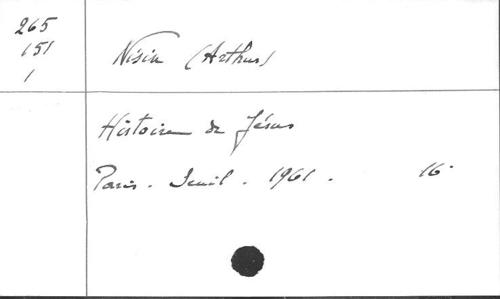 265
151
1
Nisin (Arthur)
Histoire de Jésus
Paris - Seuil - 1961 - 16°